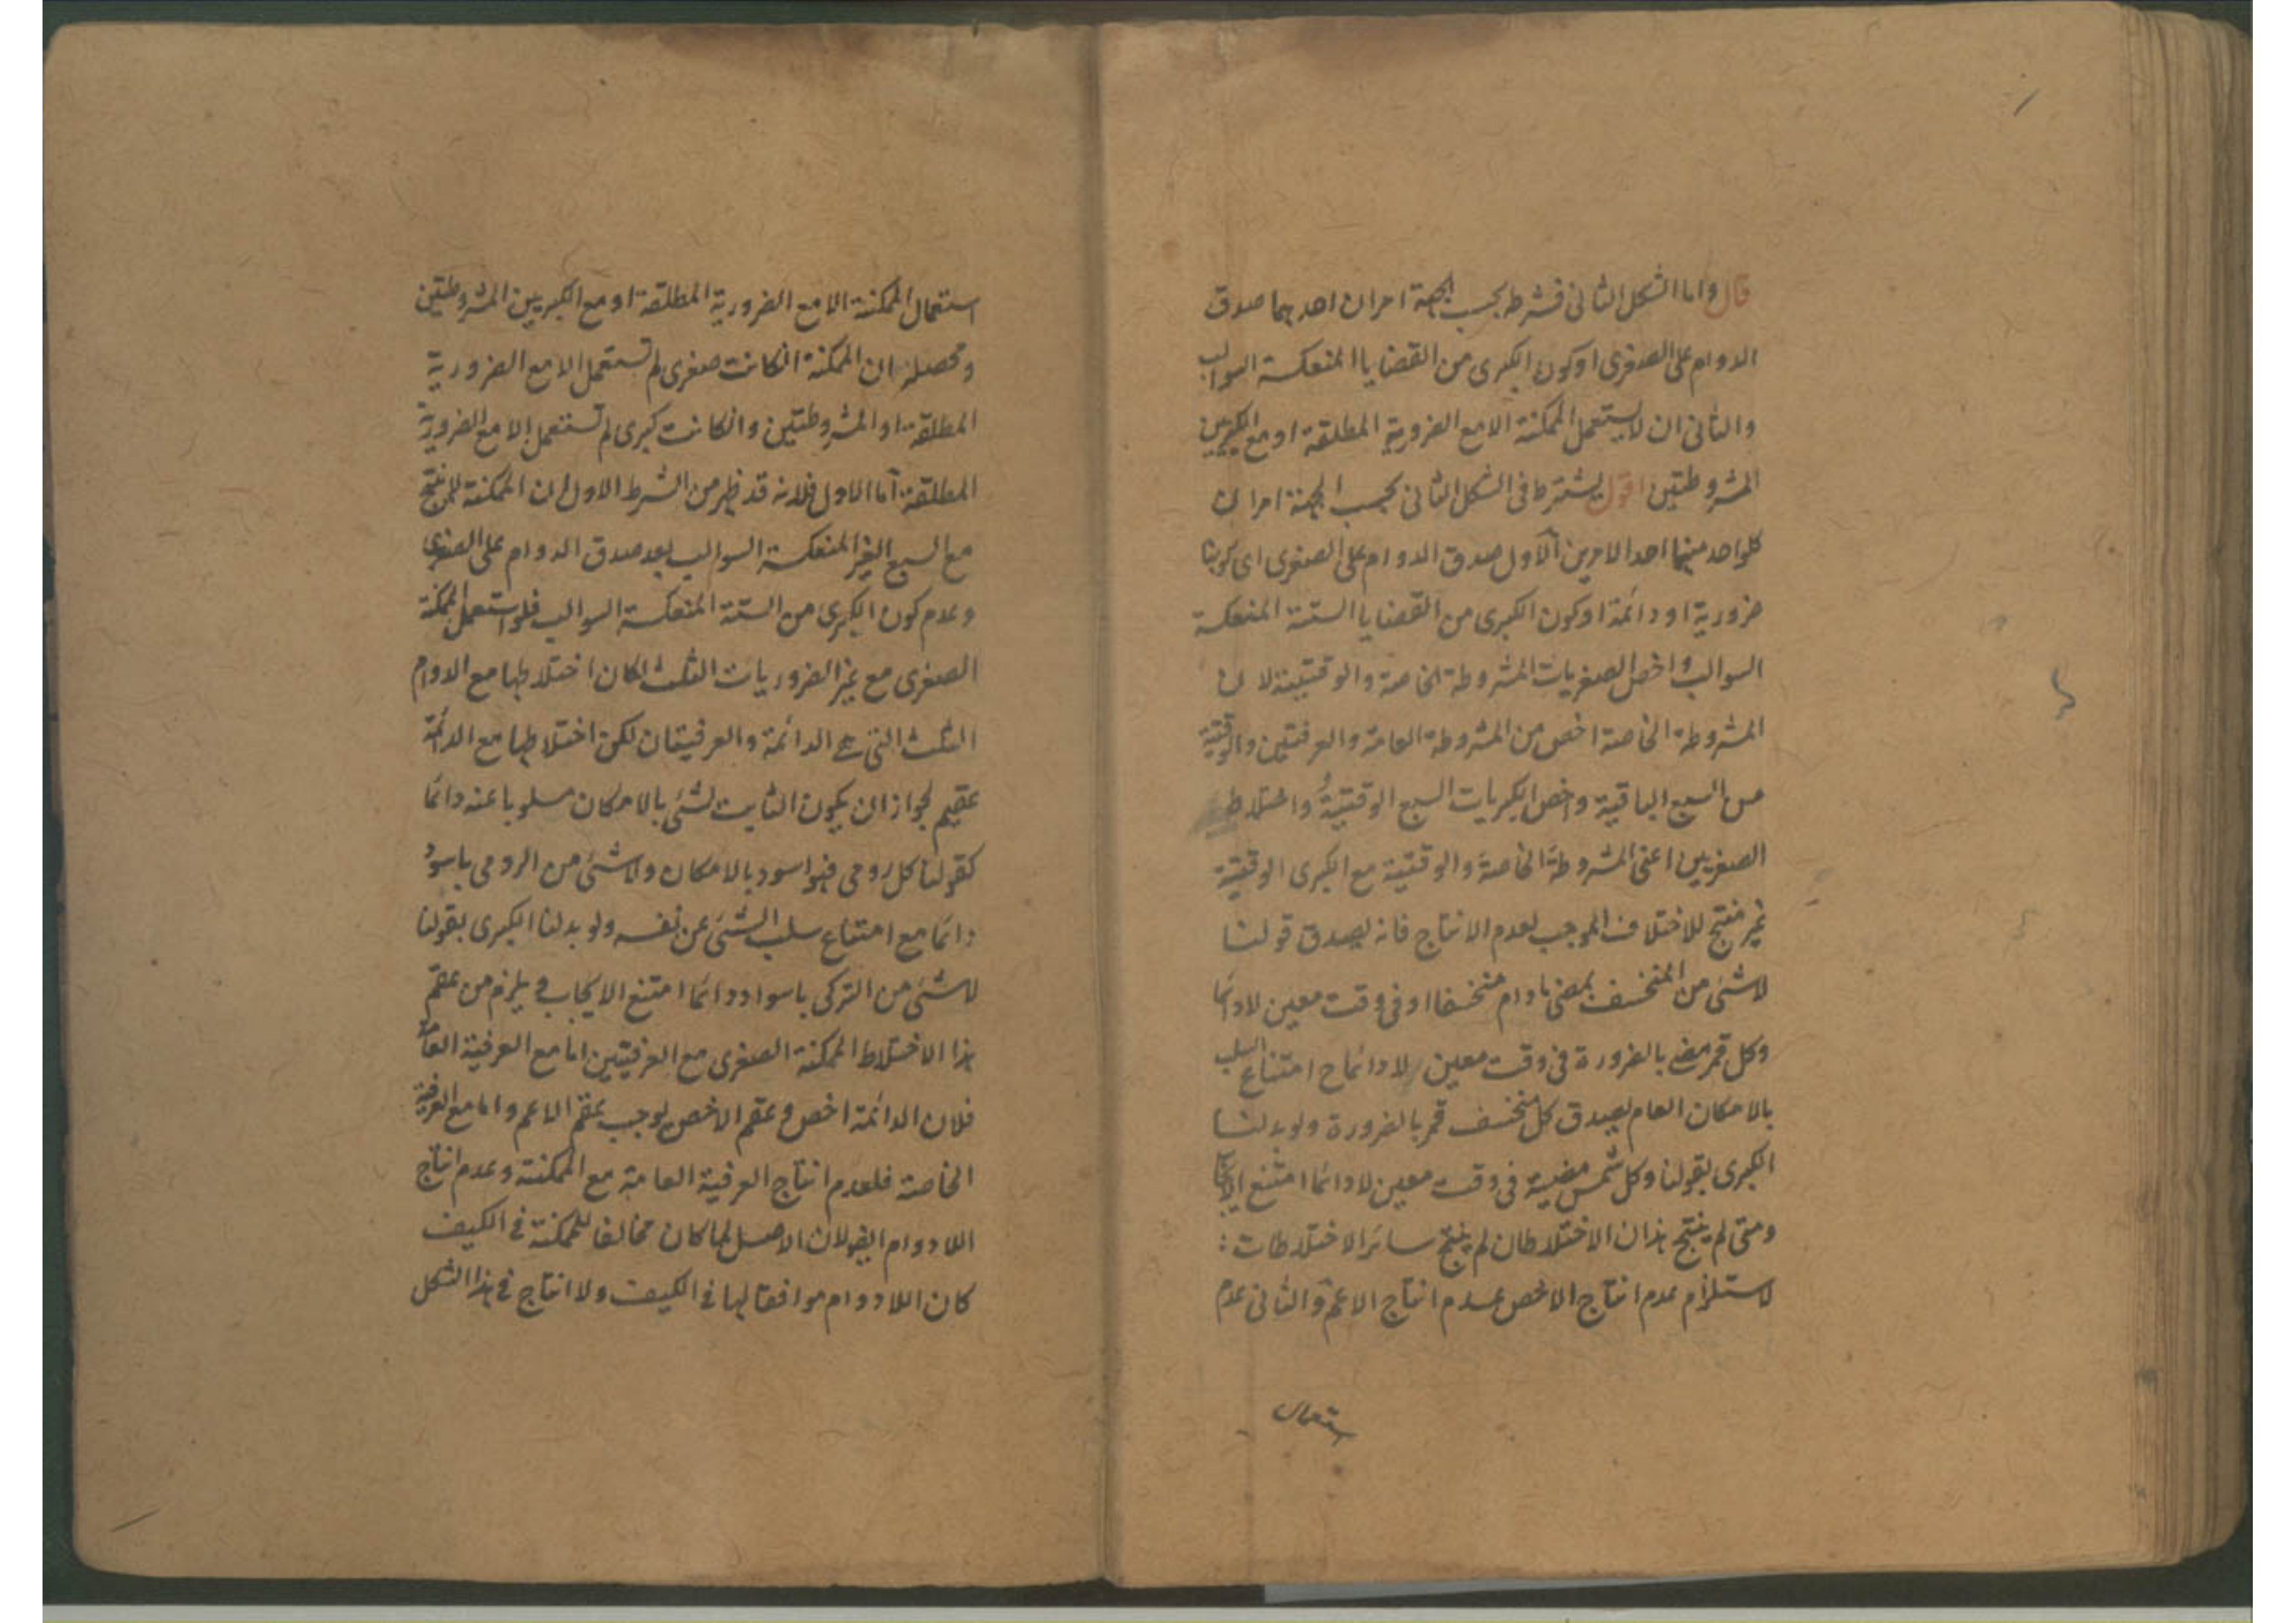 قال واما الشكل الثانى فشرطه بحسب الجهة امران احدهما صدق
الدوام على الصغرى او كون الكبرى من القضايا المنعكسة السوالب
والثانى ان لا يستعمل الممكنة الا مع الضرورية المطلقة او مع الكبريين
المشروطتين اقول يشترط فى الشكل الثانى بحسب الجهة امران
كلواحد منهما احد الامرين الاول صدق الدوام على الصغرى اى كونها
ضرورية او دائمة او كون الكبرى من القضايا الستة المنعكسة
السوالب واخص الصغريات المشروطة الخاصة والوقتية لان
المشروطة الخاصة اخص من المشروطة العامة والعرفيتين والوقتية
من السبع الباقية واخص الكبريات السبع الوقتية واختلاط
الصغريين اعنى المشروطة الخاصة والوقتية مع الكبرى الوقتية
غير منتج للاختلاف الموجب لعدم الانتاج فانه يصدق قولنا
لاشئ من المنخسف بمضئ مادام منخسفا او فى وقت معين لادائما
وكل قمر مضئ بالضرورة فى وقت معين لا دائما ح امتناع السلب
بالامكان العام يصدق كل منخسف قمر بالضرورة ولو بدلنا
الكبرى بقولنا وكل شمس مضيئة فى وقت معين لادائما امتنع الايجاب
ومتى لم ينتج هذان الاختلاطان لم ينتج سائر الاختلاطات :
لاستلزام عدم انتاج الاخص عدم انتاج الاعم والثانى عدم
استعمال
استعمال الممكنة الا مع الضرورية المطلقة او مع الكبريين المشروطتين
ومحصله ان الممكنة انكانت صغرى لم تستعمل الا مع الضرورية
المطلقة او المشروطتين وانكانت كبرى لم تستعمل الا مع الضرورية
المطلقة اما الاول فلانه قد ظهر من الشرط الاول ان الممكنة لا ينتج
مع السبع الغير المنعكسة السوالب بعد صدق الدوام على الصغرى
وعدم كون الكبرى من الستة المنعكسة السوالب فلو استعمل الممكنة
الصغرى مع غير الضروريات الثلث لكان اختلاطها مع الدوام
الثلث التى هى الدائمة والعرفيتان لكن اختلاطها مع الدائمة
عقيم لجواز ان يكون الثابت لشئ بالامكان مسلوبا عنه دائما
كقولنا كل رومى فهو اسود بالامكان ولاشئ من الرومى باسود
دائما مع امتناع سلب الشئ عن نفسه ولو بدلنا الكبرى بقولنا
لاشئ من التركى باسود دائما امتنع الايجاب و يلزم من عقم
هذا الاختلاط الممكنة الصغرى مع العرفيتين اما مع العرفية العامة
فلان الدائمة اخص وعقم الاخص يوجب عقم الاعم واما مع العرفية
الخاصة فلعدم انتاج العرفية العامة مع الممكنة وعدم انتاج
اللادوام ايضا لان الاصل لما كان مخالفا للممكنة فى الكيف
كان اللادوام موافقا لها فى الكيف ولا انتاج فى هذا الشكل